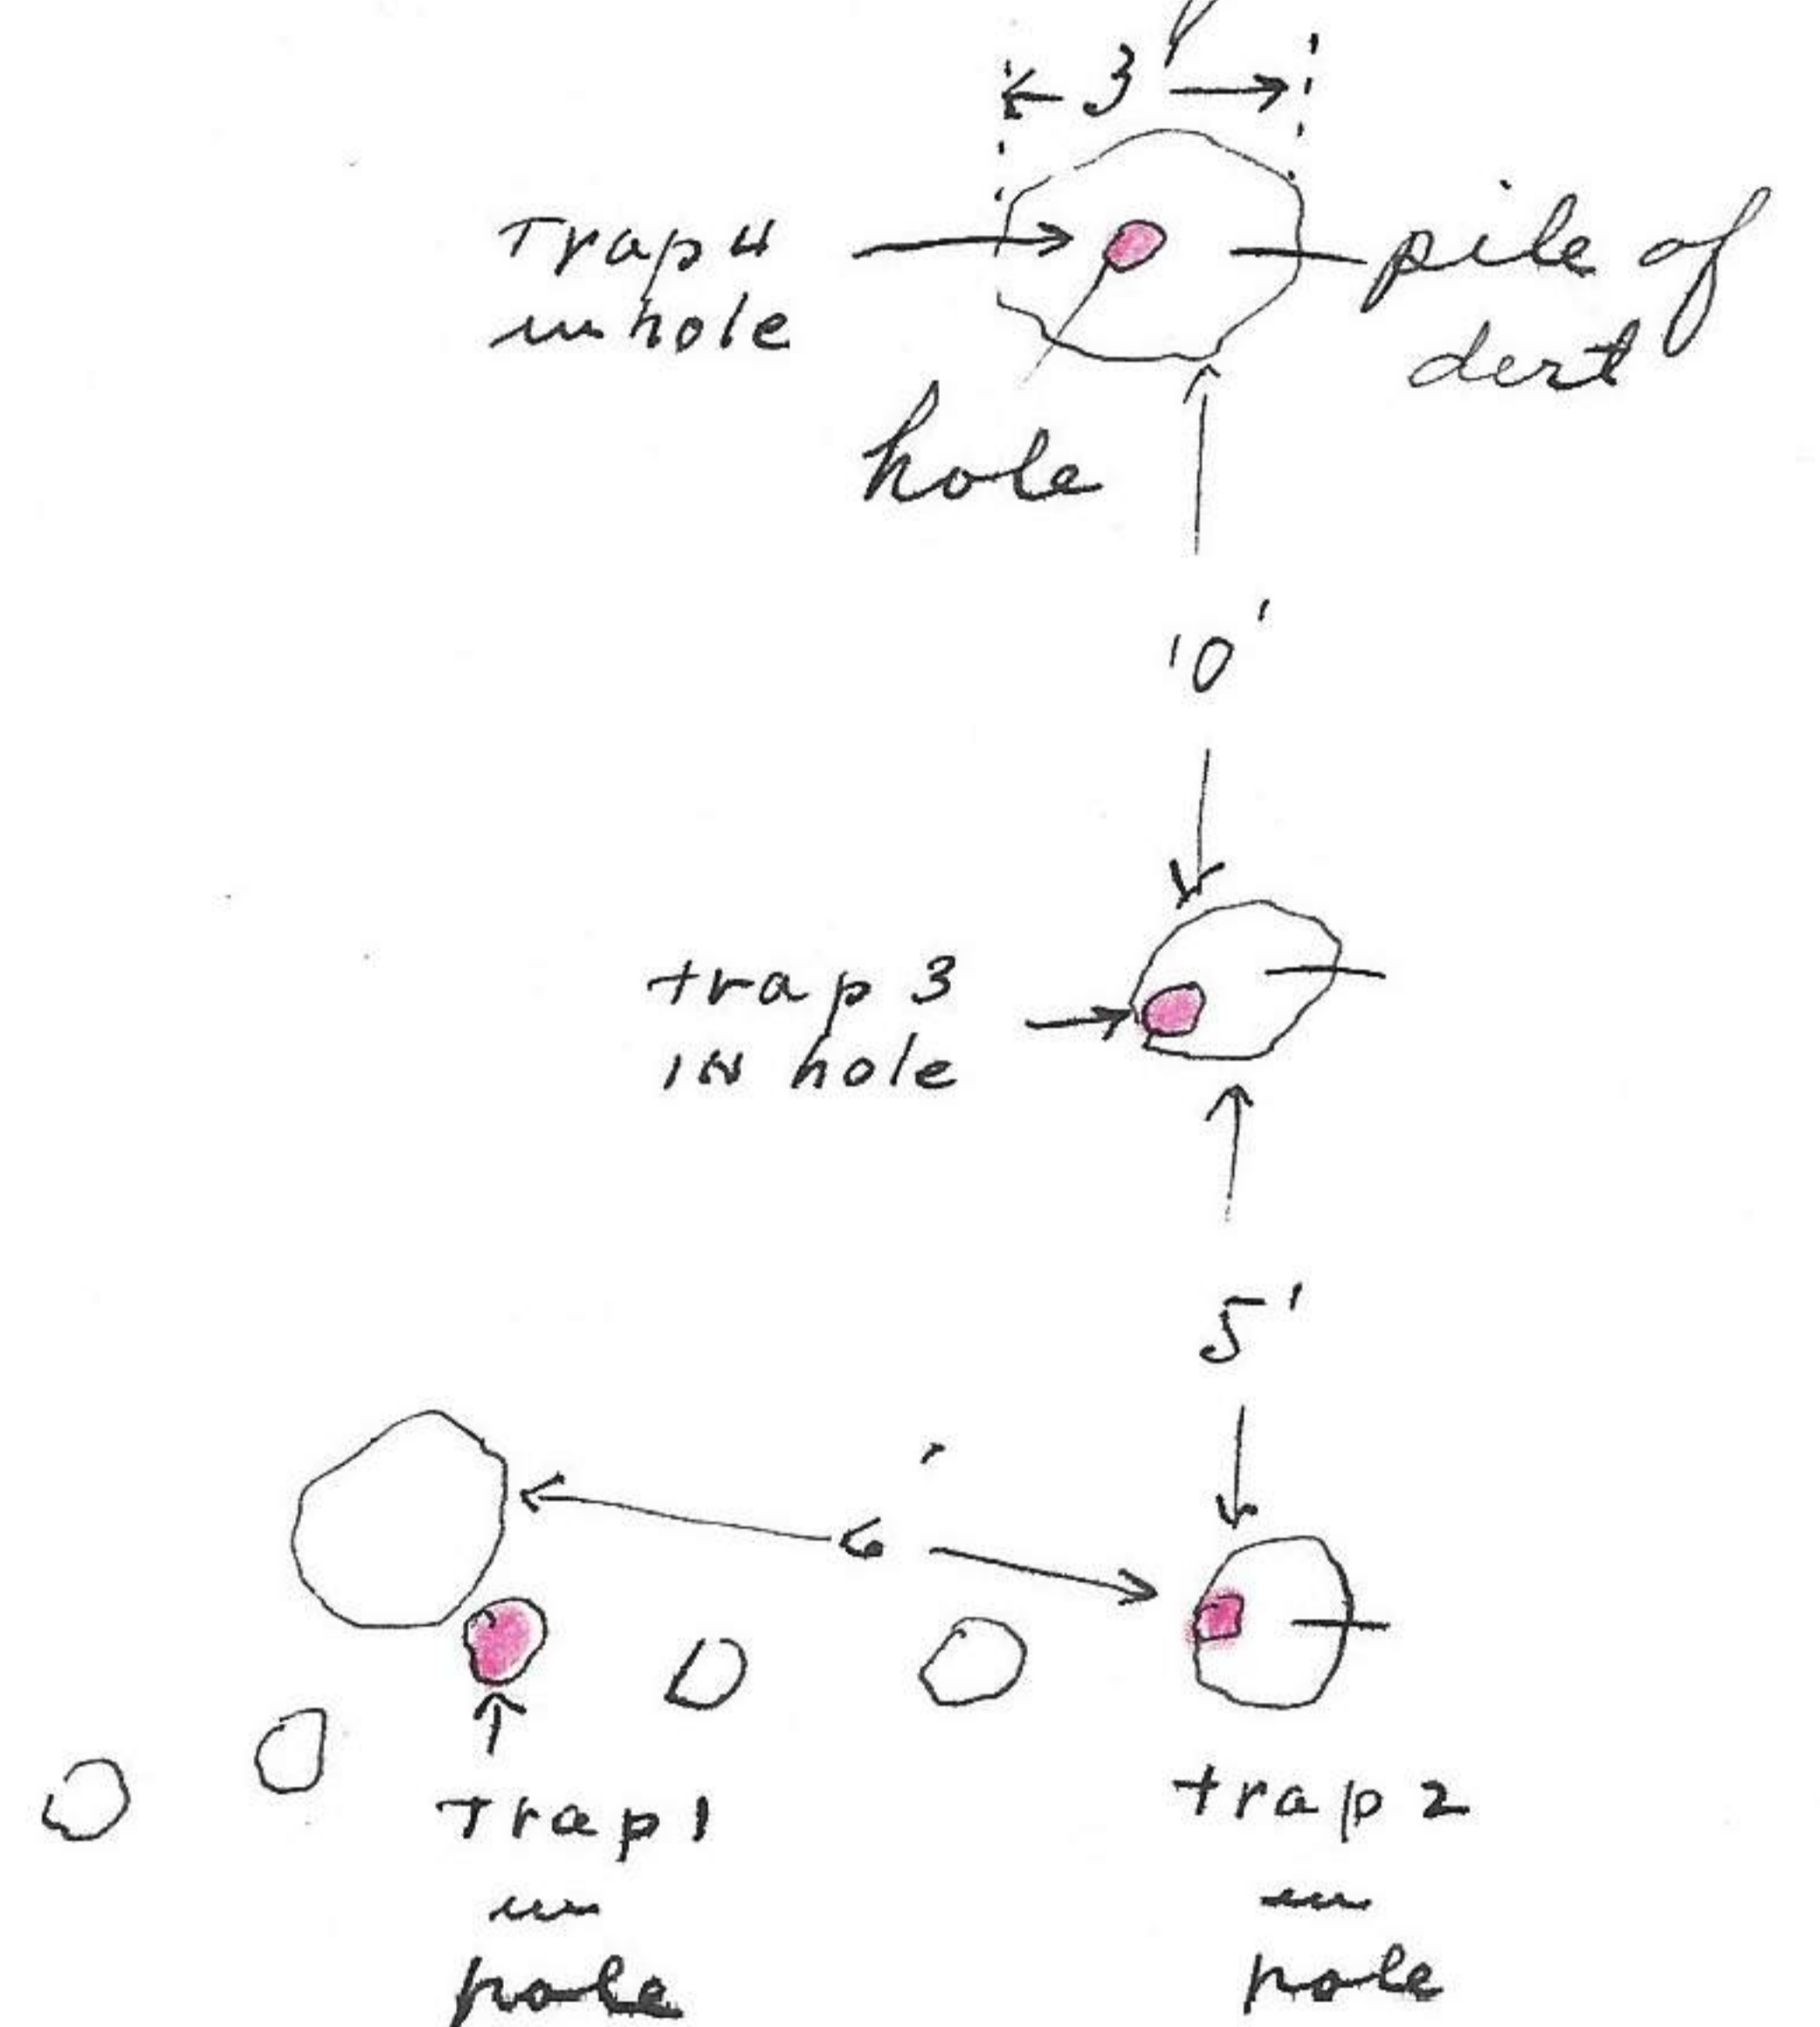 3'
Trap 4
in hole
pile of
dert
hole
10'
trap 3
IN hole
5'
6'
Trap 1
in
hole
trap 2
in
hole